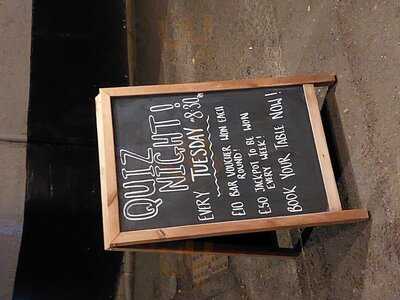 QUIZ
NIGHT!
EVERY TUESDAY 8:30pm
£10 BAR VOUCHER WON EACH
ROUND!
£50 JACKPOT TO BE WON
EVERY WEEK!
BOOK YOUR TABLE NOW!